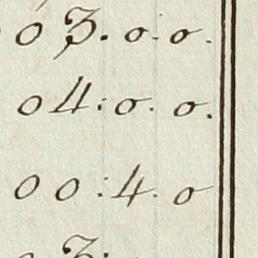 03. 0. 0.
04: 0. 0.
00:4. 0
3: